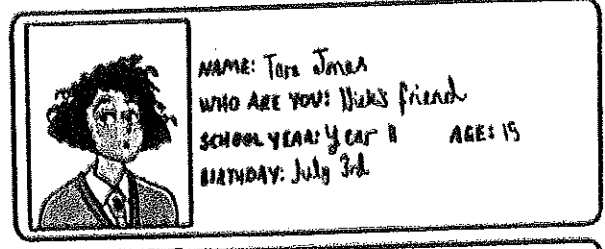 NAME: Tara Jones
WHO ARE YOU: Nick's friend
SCHOOL YEAR: Year 11 AGE: 15
BIRTHDAY: July 3rd